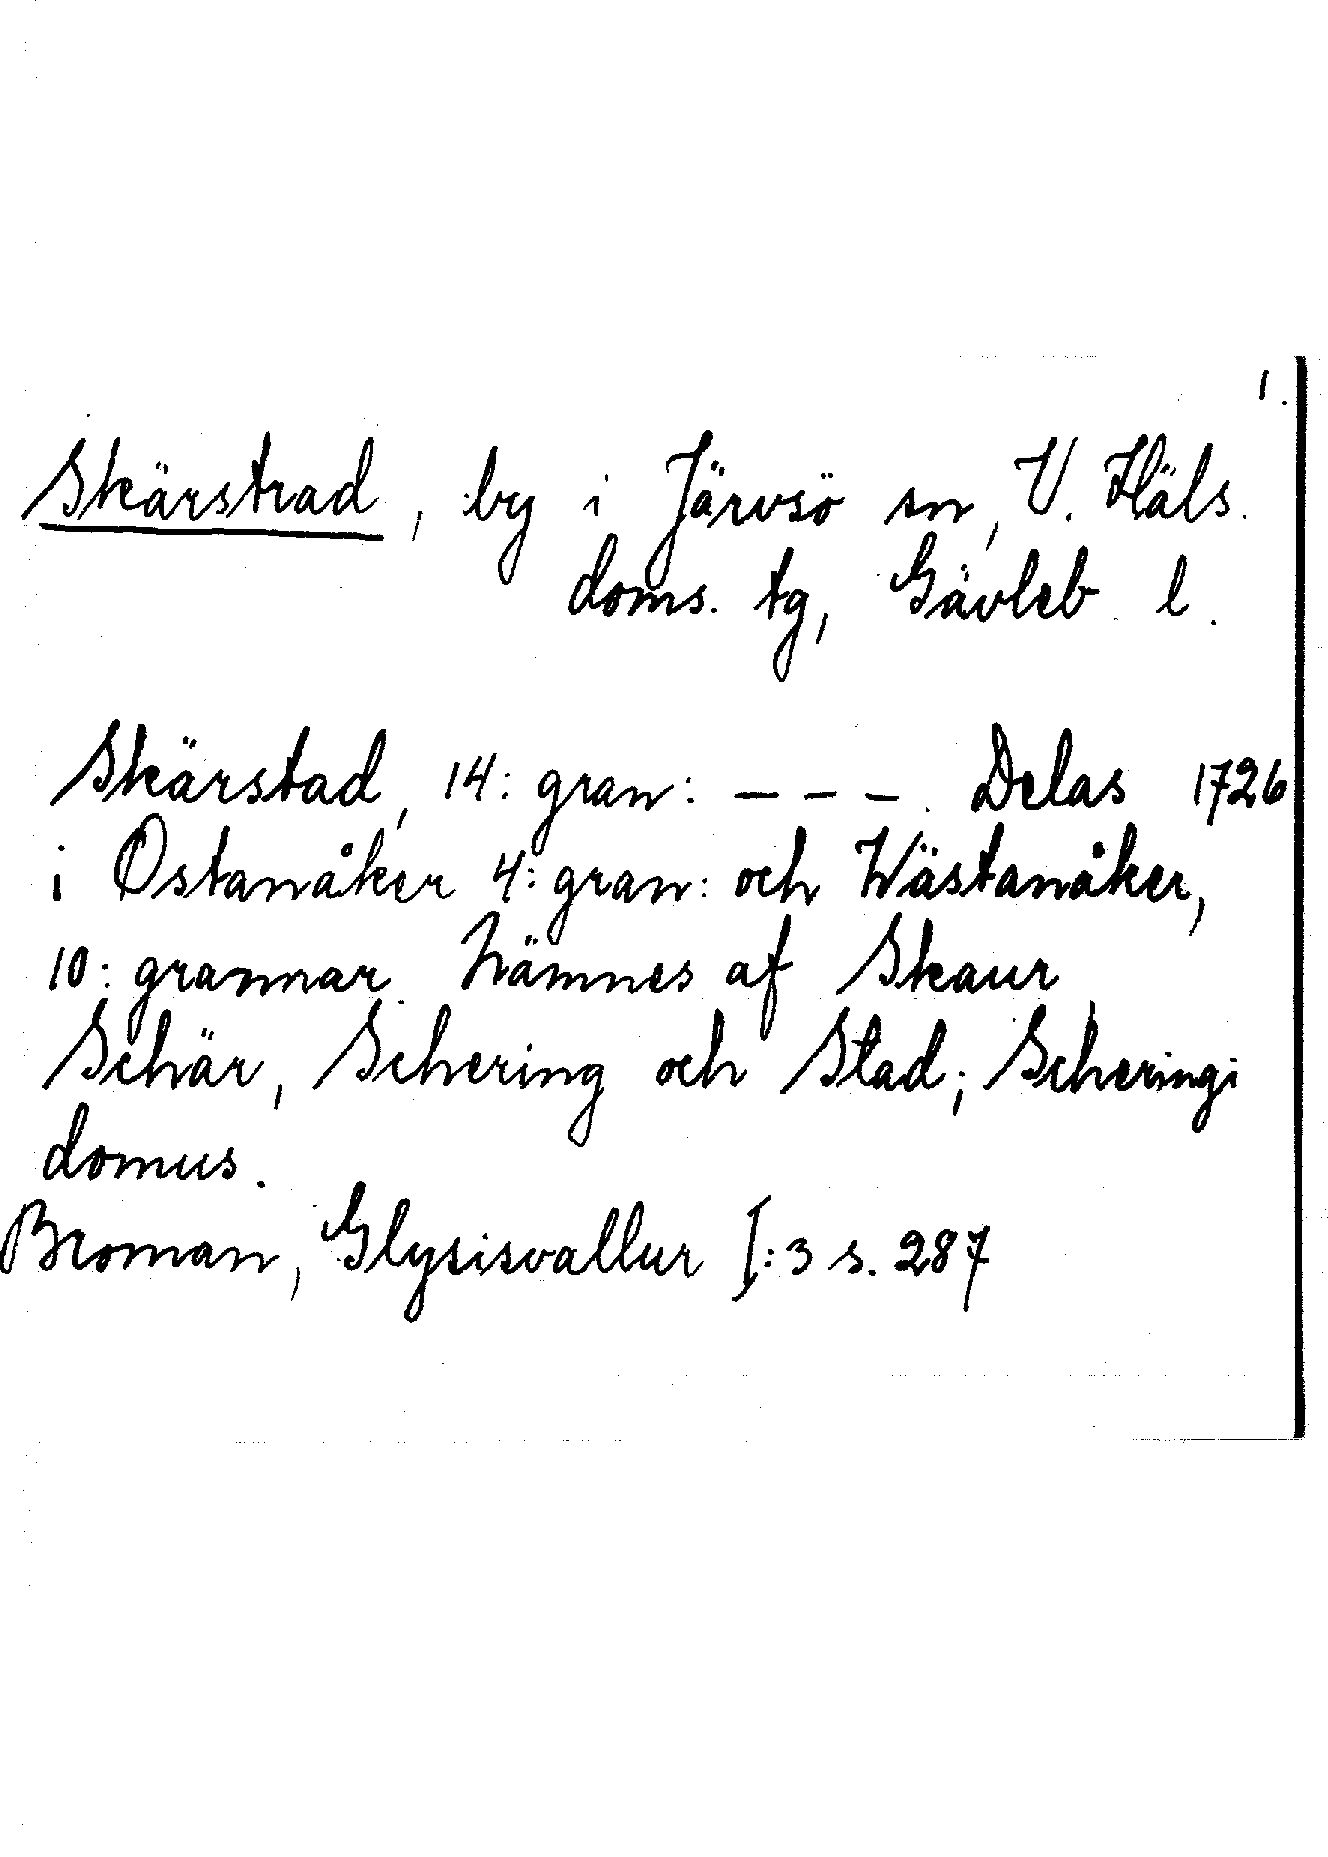 1.
Skärstrad, by i Järvsö sn, V. Häls.
doms. tg, Gävleb. l.
Skärstad, 14: gran: – – – . Delas 1726
i Ostanåker 4: gran: och Wästanåker,
10: grannar. Nämnes af Skaur,
Schär, Schering och Stad; Scheringi
domus.
Broman, Glysisvallur I:3 s. 287